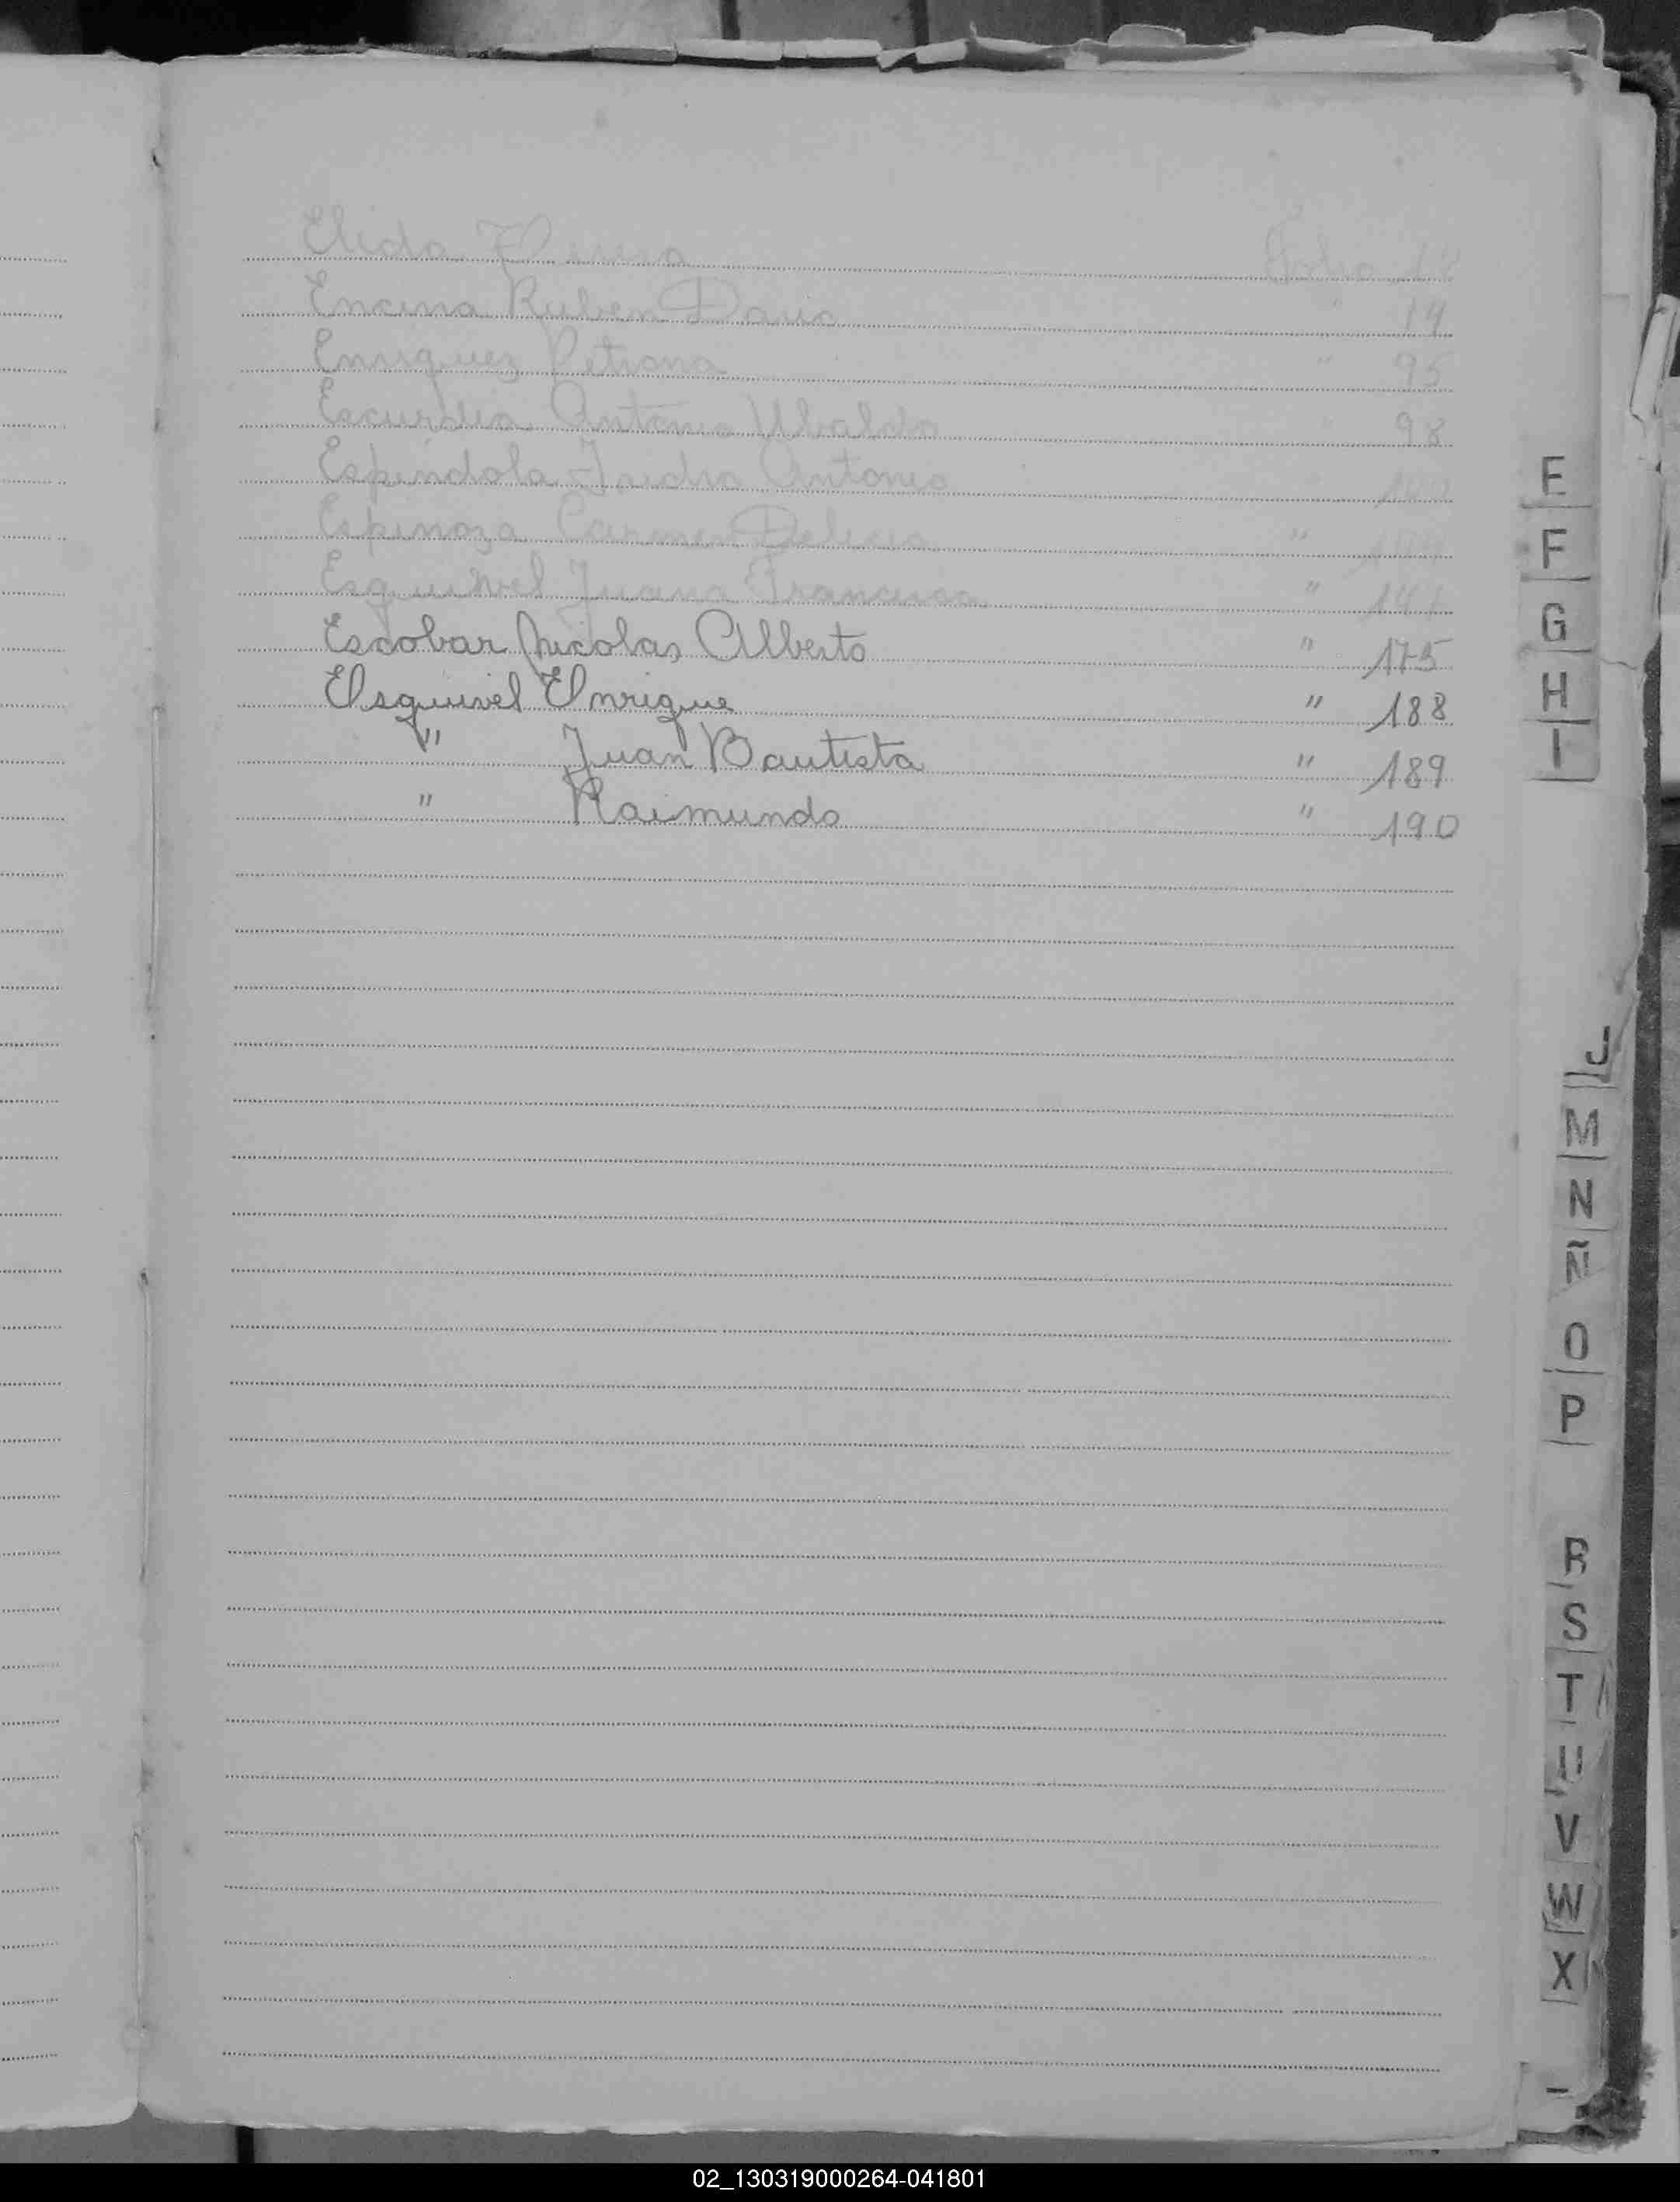 Elida Folio
Encina Ruben Dario " 14
Enriquez Petrona " 95
Escurdia Antonio Ubaldo 98
Espindola Isidro Antonio
Espinoza Carmen Delicia "
Esquivel Juana Francisca " 141
Escobar Nicolas Alberto " 175
Esquivel Enrique " 188
" Juan Bautista " 189
" Raimundo " 190
E
F
G
H
I
J
M
N
Ñ
O
P
R
S
T
U
V
W
X
02_130319000264-041801